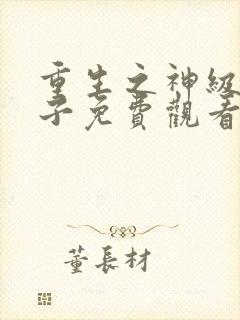 重生之神級
子免費觀看
董長材